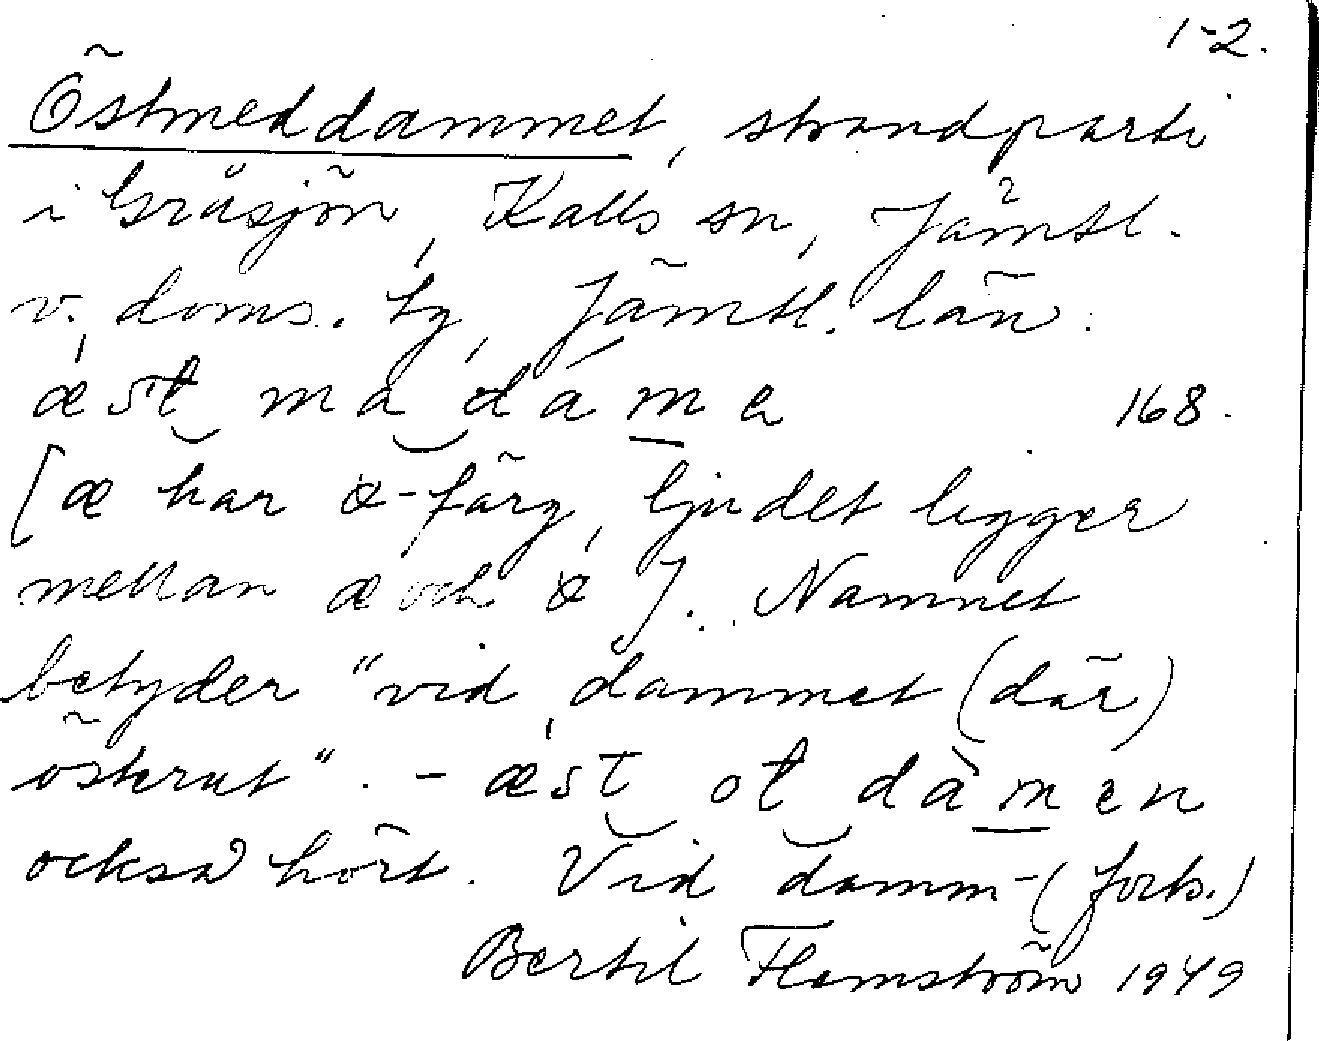 1-2.
Östmeddammet, strandparti
i Gråsjön, Kalls sn, Jämtl.
v. doms. tg, Jämtl. län.
æst ma dáme 168.
[æ har œ-färg, ljudet ligger
mellan æ och œ]. Namnet
betyder "vid dammet (där)
österut". - æst ot dàmen
också hört. Vid damm- (forts.)
Bertil Flemström 1949